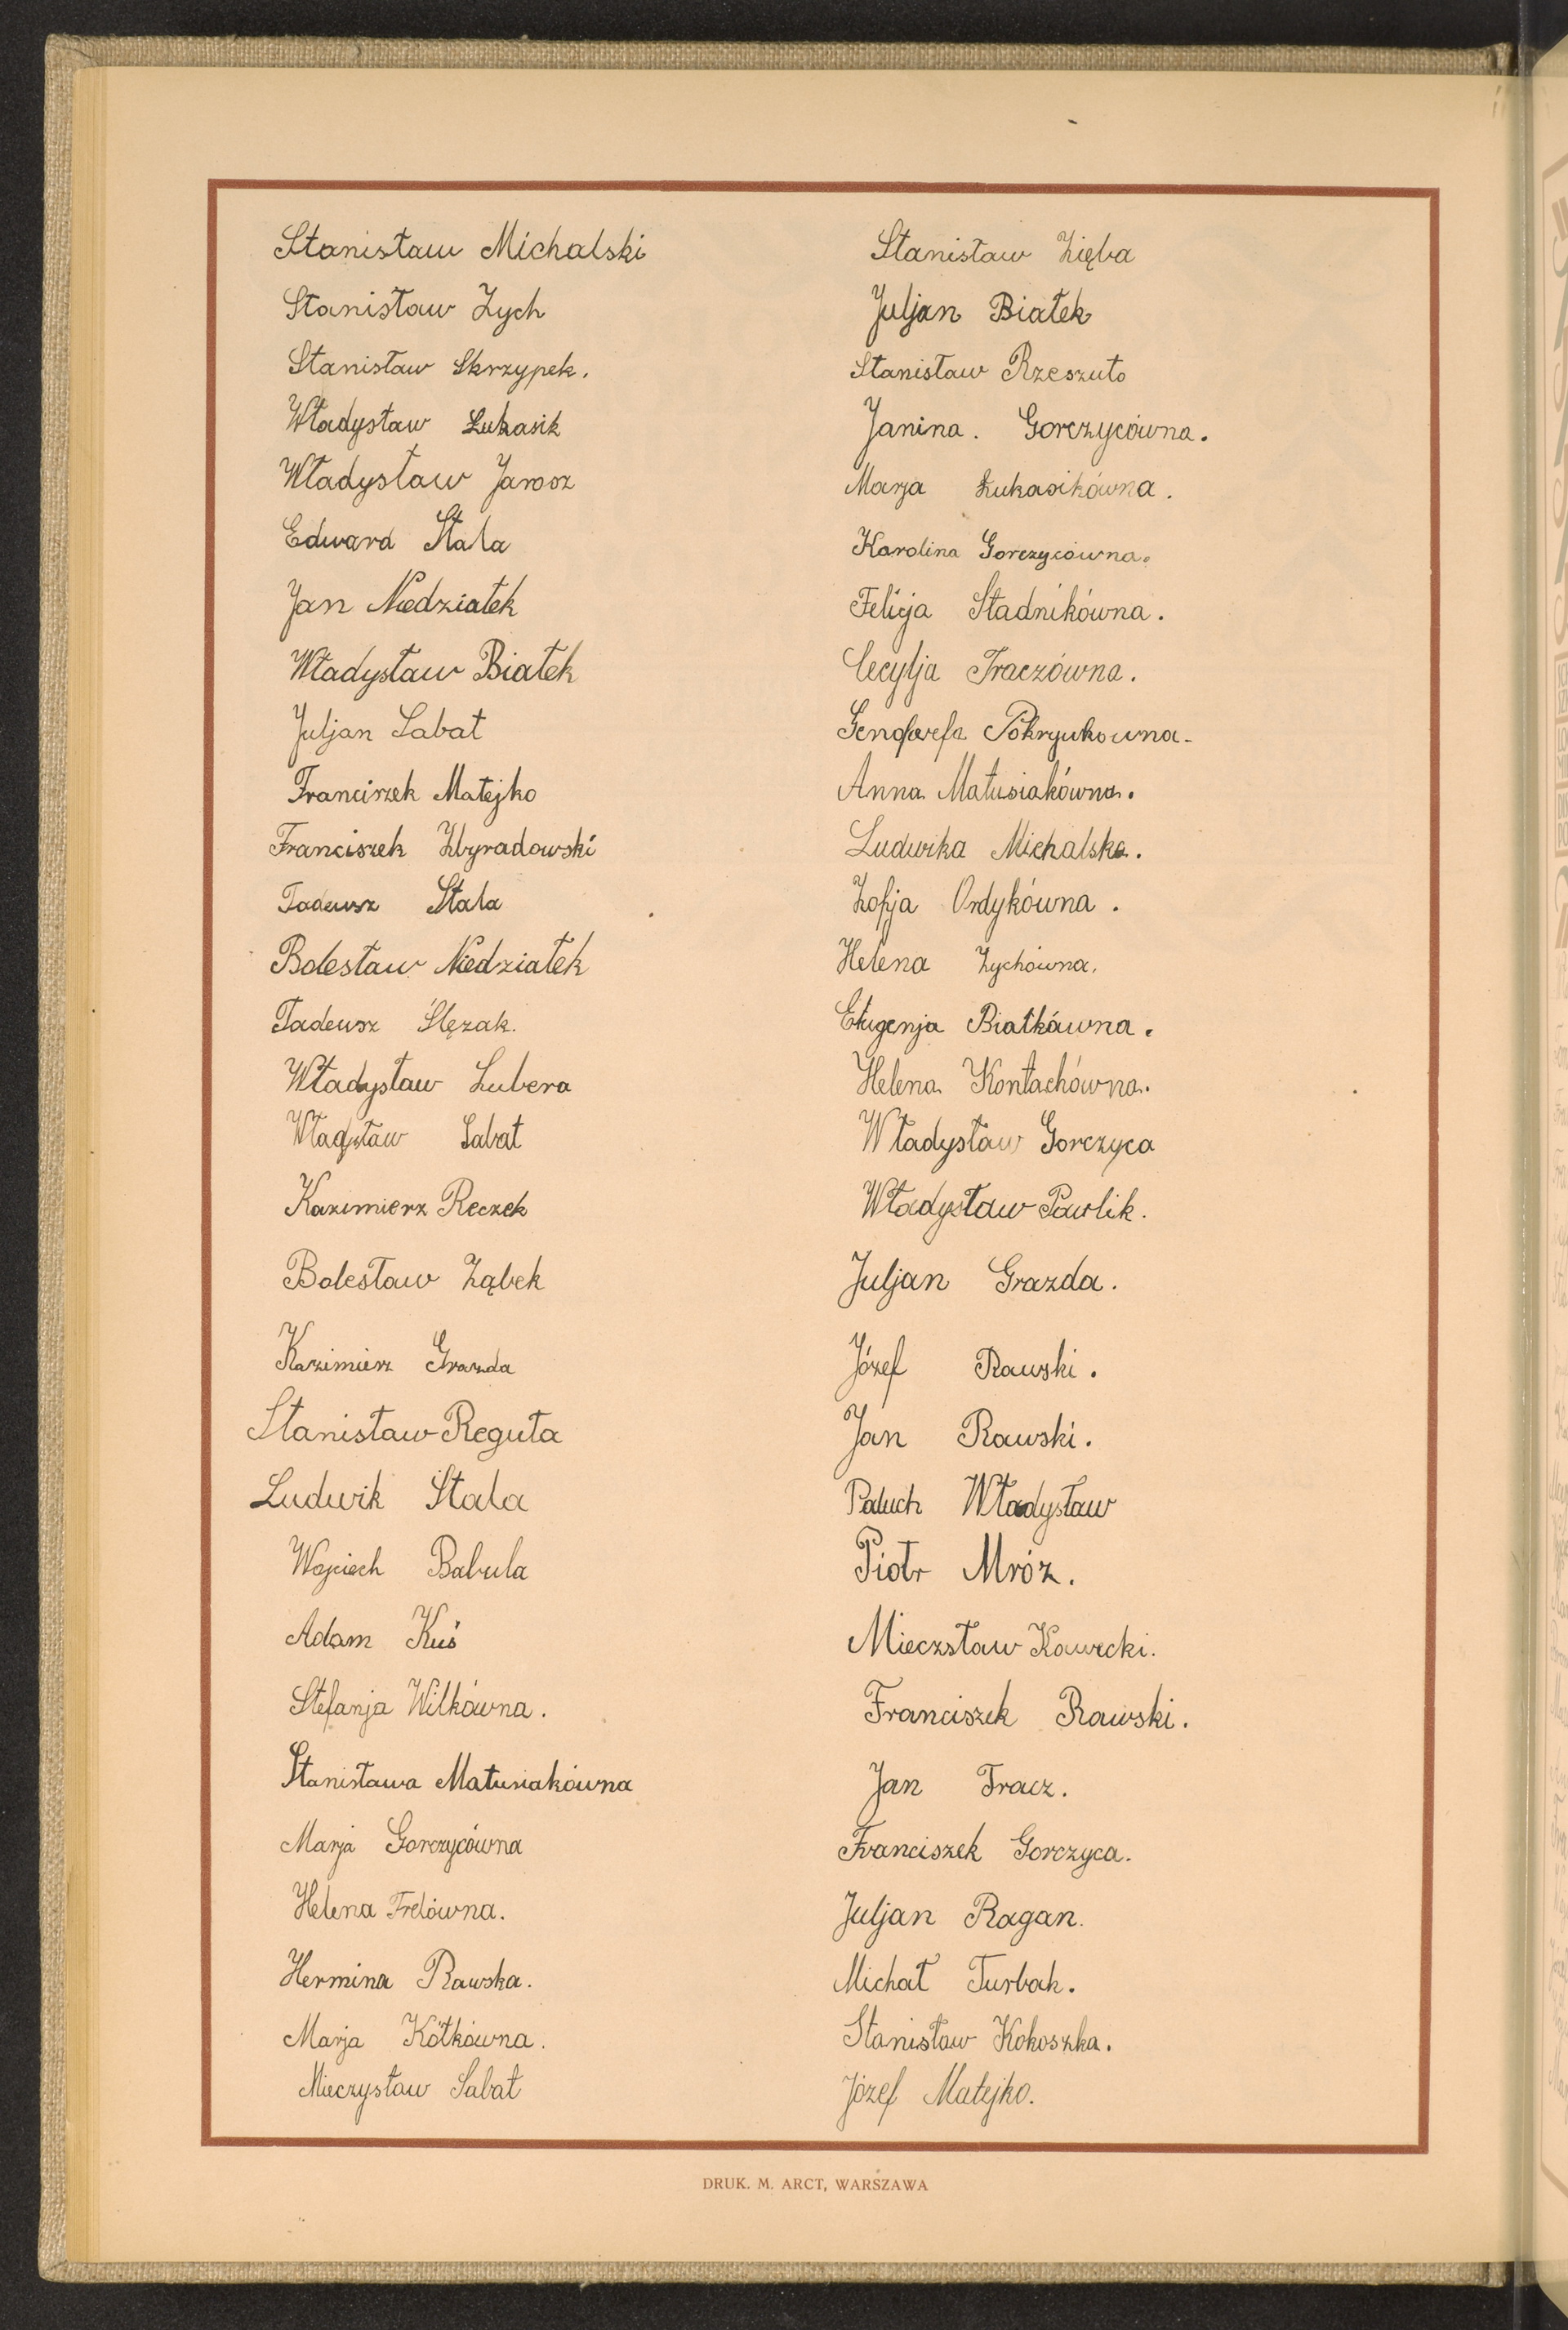 Stanisław Michalski
Stanisław Zych
Stanisław Skrzypek.
Władysław Łukasik
Władysław Jarosz
Edward Stala
Jan Niedziałek
Władysław Białek
Juljan Sabat
Franciszek Matejko
Franciszek Zbyradowski
Tadeusz Stala
Bolesław Niedziałek
Tadeusz Ślęzak.
Władysław Lubera
Sabat
Kazimierz Reczek
Bolesław Ząbek
Kazimierz Grazda
Stanisław Reguła
Ludwik Stala
Wojciech Babula
Adam Kuś
Stefanja Wilkówna.
Stanisława Matusiakówna
Marja Gorczycówna
Helena Frelówna.
Hermina Rawska.
Marja Kótkówna.
Mieczysław Sabat
Stanisław Zięba
Juljan Białek
Stanisław Rzeszuto
Janina. Gorczycówna.
Marja Łukasikówna.
Karolina Gorczycówna.
Felicja Stadnikówna.
Cecylja Traczówna.
Genofwefa
Anna Matusiakówna.
Ludwika Michalska.
Zofja Ordykówna.
Helena Zychówna.
Białkówna.
Helena Kontachówna.
Władysław Gorczyca
Władysław Pawlik.
Juljan Grazda.
Józef Rawski.
Jan Rawski.
Paluch Władysław
Piotr Mróz.
Mieczsław Kawecki.
Franciszek Rawski.
Jan Tracz.
Franciszek Gorczyca.
Juljan Ragan.
Michał Turbak.
Stanisław Kokoszka.
Józef Matejko.
DRUK. M. ARCT, WARSZAWA